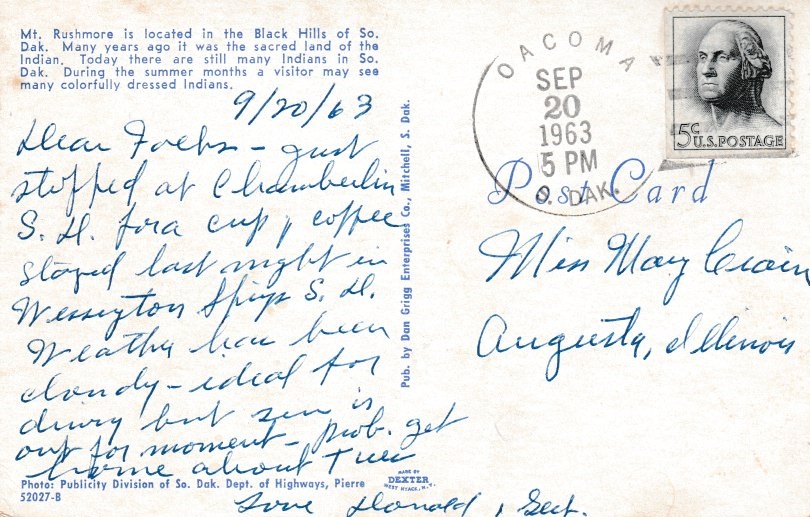 Mt. Rushmore is located in the Black Hills of So.
Dak. Many years ago it was the sacred land of the
Indian. Today there are still many Indians in So.
Dak. During the summer months a visitor may see
many colorfully dressed Indians.
9/20/63
Dear Folks – Just
stopped at Chamberlin
S. D. for a cup of coffee
stayed last night in
Wessington Spgs S. D.
Weather has been
cloudy – ideal for
driving but sun is
out for moment – prob. get
home about Tues
Love Donald,
Photo: Publicity Division of So. Dak. Dept. of Highways, Pierre
52027-B
Pub. by Dan Grigg Enterprises Co., Mitchell, S. Dak.
MADE BY
DEXTER
WEST NYACK, N.Y.
OACOMA
SEP
20
1963
5 PM
S. DAK.
5c
U.S. POSTAGE
Post Card
Miss Mary Crain
Augusta, Illinois